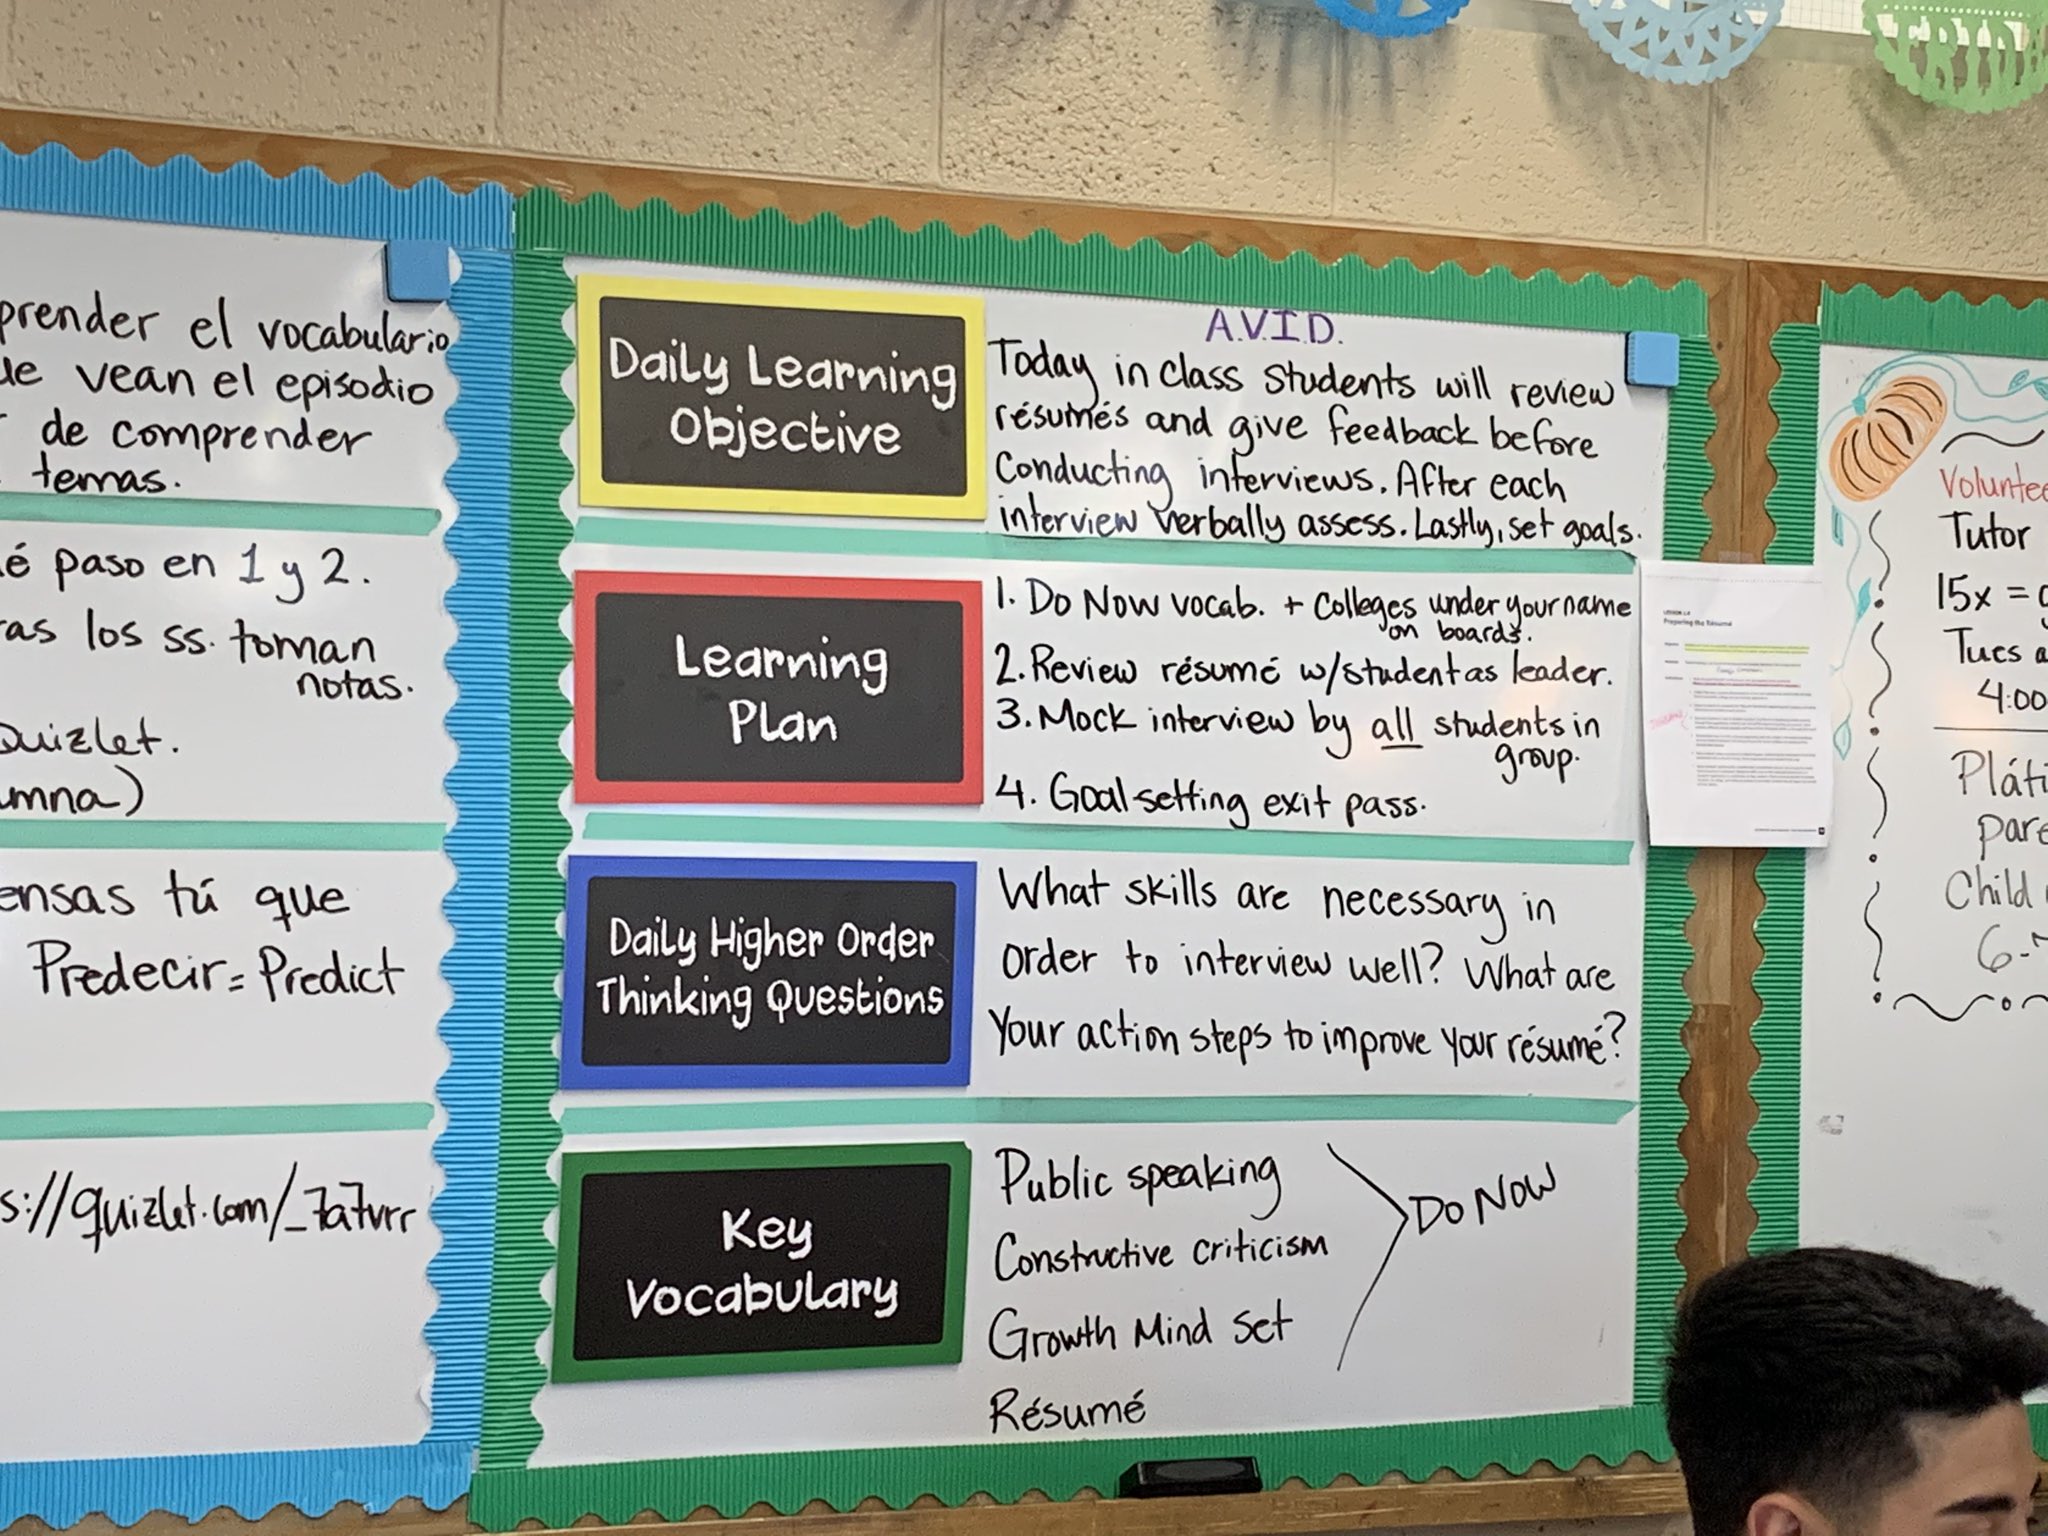 prender el vocabulario
vean el episodio
de comprender
temas.
paso en 1 y 2.
los ss. toman
notas.
Quizlet.
tú que
Predecir = Predict
s://quizlet.com/_7a7vrr
Daily Learning
Objective
A.V.I.D.
Today in class students will review
résumés and give feedback before
conducting interviews. After each
interview verbally assess. Lastly, set goals.
Learning
Plan
1. Do Now vocab. + Colleges under your name
on boards.
2. Review résumé w/student as leader.
3. Mock interview by all students in
group.
4. Goal-setting exit pass.
Daily Higher Order
Thinking Questions
What skills are necessary in
order to interview well? What are
your action steps to improve your résumé?
Key
Vocabulary
Public speaking
Constructive criticism
Growth Mind Set
Résumé
Do Now
Preparing the Résumé
Tutor
15x =
Tues
4:00
Child